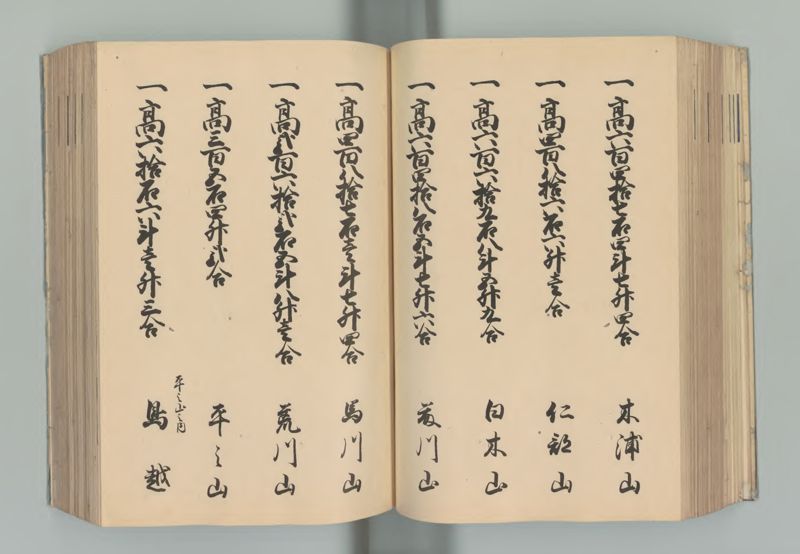 一高六百四拾七石四斗七升四合 木浦山
一高四百八拾六石六升壱合 仁郷山
一高六百六拾九石八斗五升九合 日木山
一高六百四拾八石五斗七升六合 菱川山
一高四百八拾七石壱斗七升四合 馬川山
一高弐百六拾弐石五斗八升壱合 荒川山
一高三百五石四升弐合 平之山
一高六拾石六斗壱升三合 平之山之内 鳥越